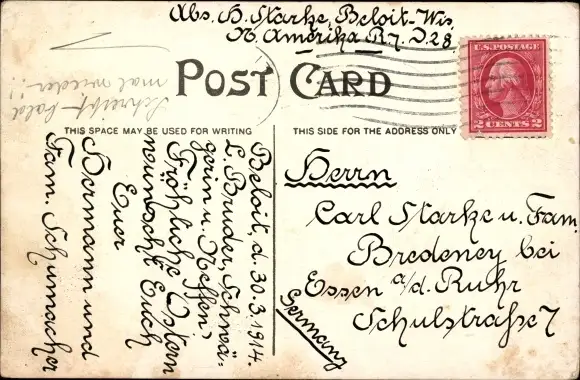 Abs. H. Starke, Beloit-Wis
N. Amerika R. 7. D. 28
U.S. POSTAGE
2 CENTS 2
POST CARD
Schreibt bald
mal wieder!!
THIS SPACE MAY BE USED FOR WRITING
THIS SIDE FOR THE ADDRESS ONLY
Beloit, d. 30.3.1914.
L. Bruder, Schwä-
gerin u. Neffen!
Fröhliche Ostern
wünscht Euch
Euer
Hermann und
Fam. Schumacher
Herrn
Carl Starke u. Fam.
Bredeney bei
Essen a/d. Ruhr
Schulstraße 7
Germany